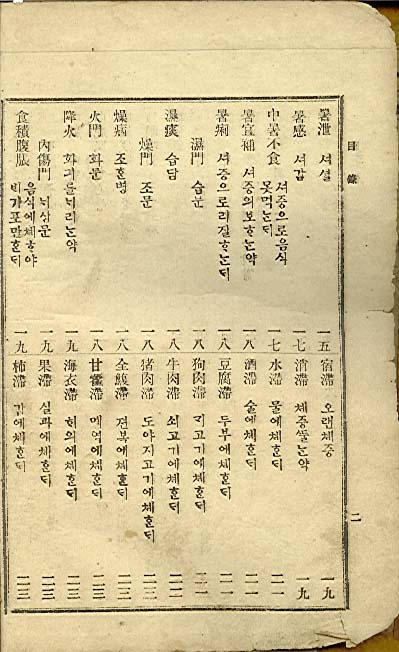 目錄
二
暑泄 셔셜 一五
暑感 셔감 一七
中暑不食 셔중으로음식못먹는ᄃᆡ 一七
暑宜補 셔중의보ᄒᆞ는약 一八
暑痢 셔중으로리질ᄒᆞ는ᄃᆡ 一八
濕門 습문 一八
濕痰 습담 一八
燥門 조문 一八
燥病 조ᄒᆞᆫ병 一八
火門 화문 一八
降火 화긔를ᄂᆡ리는약 一九
內傷門 ᄂᆡ상문 一九
食積腹脹 음식에체ᄒᆞ야ᄇᆡ가포만ᄒᆞᆫᄃᆡ 一九
宿滯 오랜체중 一九
消滯 체중쓸는약 一九
水滯 물에체ᄒᆞᆫᄃᆡ 二一
酒滯 술에체ᄒᆞᆫᄃᆡ 二一
豆腐滯 두부에체ᄒᆞᆫᄃᆡ 二一
狗肉滯 ᄀᆡ고기에체ᄒᆞᆫᄃᆡ 二一
牛肉滯 쇠고기에체ᄒᆞᆫᄃᆡ 二二
猪肉滯 도야지고기에체ᄒᆞᆫᄃᆡ 二二
全鰒滯 젼복에체ᄒᆞᆫᄃᆡ 二二
甘藿滯 메역에체ᄒᆞᆫᄃᆡ 二三
海衣滯 ᄒᆡ의에체ᄒᆞᆫᄃᆡ 二三
果滯 실과에체ᄒᆞᆫᄃᆡ 二三
柿滯 감에체ᄒᆞᆫᄃᆡ 二三